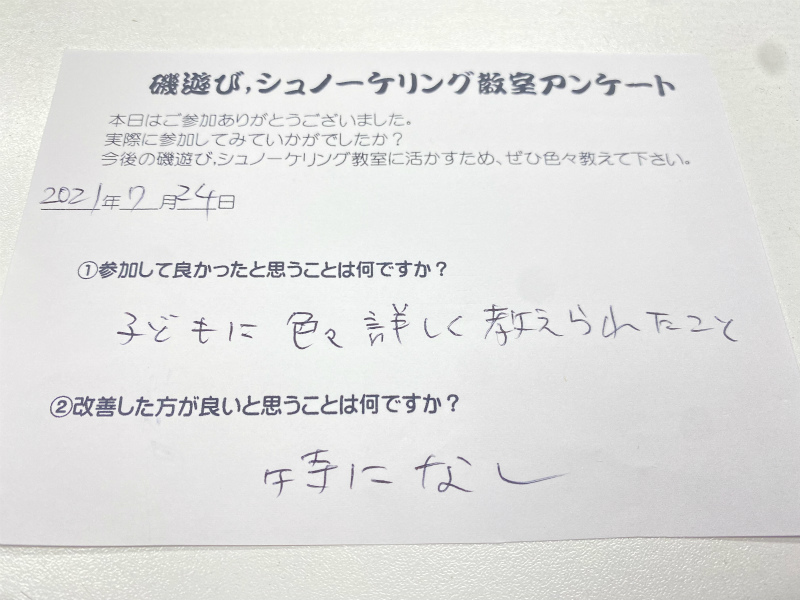 磯遊び,シュノーケリング教室アンケート
本日はご参加ありがとうございました。
実際に参加してみていかがでしたか？
今後の磯遊び,シュノーケリング教室に活かすため、ぜひ色々教えて下さい。
2021年7月24日
①参加して良かったと思うことは何ですか？
子どもに 色々 詳しく 教えられたこと
②改善した方が良いと思うことは何ですか？
特になし